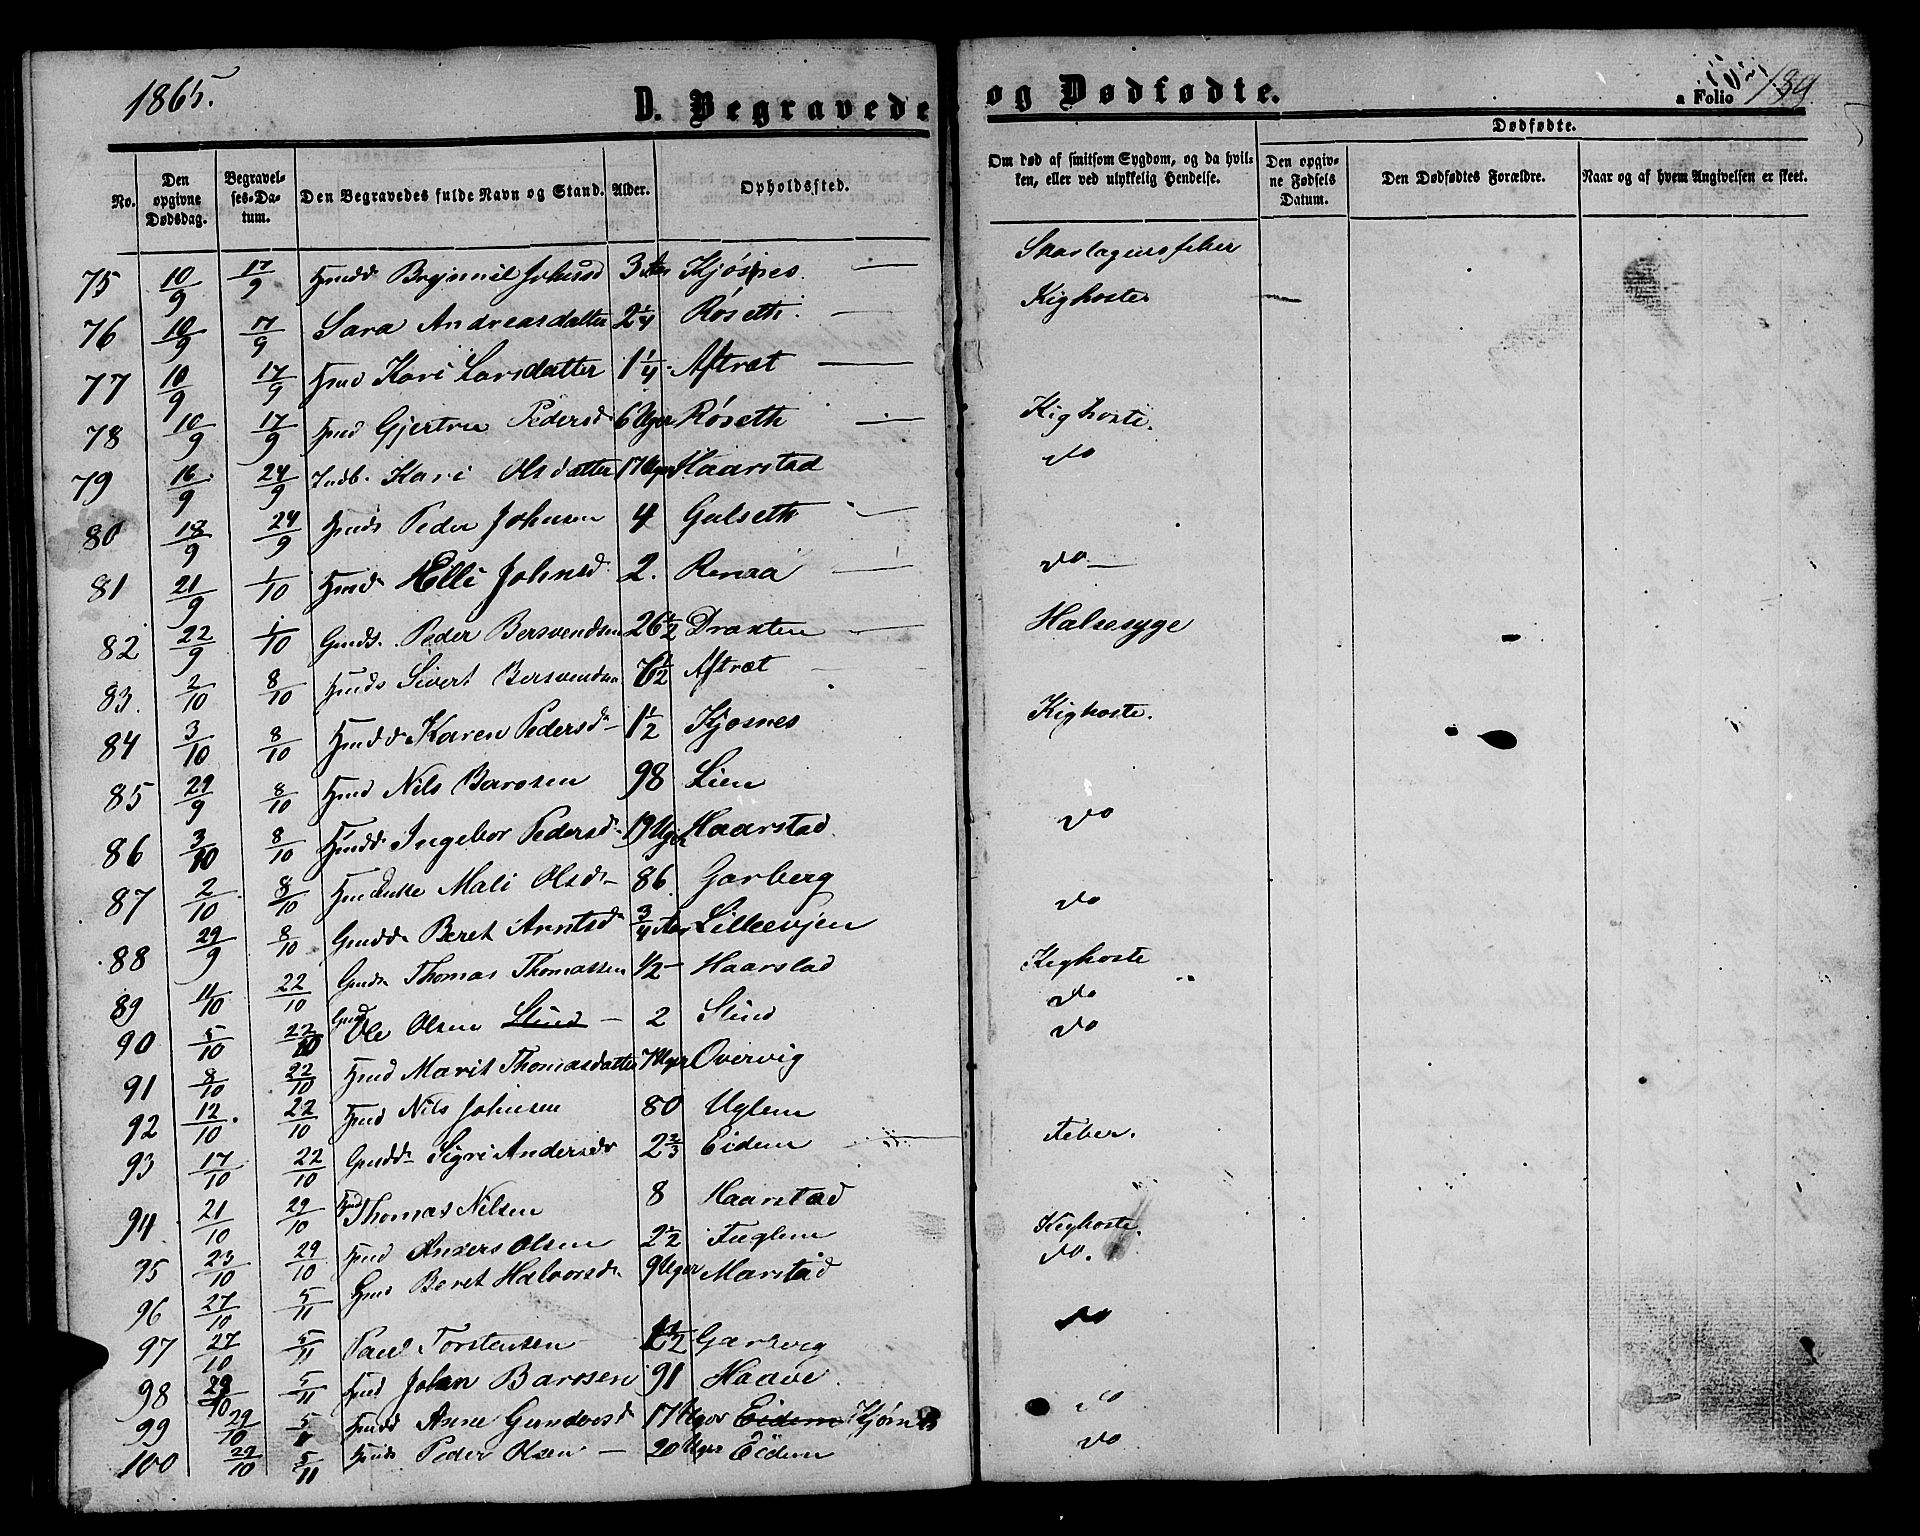 1865.
D. Begravede og Dødfødte.
a Folio 189
Dødfødte.
No.
Den opgivne Dødsdag.
Begravelses-Datum.
Den Begravedes fulde Navn og Stand.
Alder.
Opholdssted.
Om død af smitsom Sygdom, og da hvilken, eller ved ulykkelig Hendelse.
Den opgivne Fødsels Datum.
Den Dødfødtes Forældre.
Naar og af hvem Angivelsen er skeet.
75 10/9 17/9 Johnsd 3 Kjösnes — Skarlagensfeber
76 10/9 17/9 Sara Andreasdatter 2 1/4 Röseth — Kighoste —
77 10/9 17/9 Kari Larsdatter 1 1/4 Aftræt —
78 10/9 17/9 Gjertru Pedersd 6 Uger Röseth — Kighoste.
79 16/9 24/9 Indb. Kari Olsdatter 17 Uger Haarstad do
80 18/9 24/9 Peder Johnsen 4 Gulseth —
81 21/9 1/10 Elli Johnsd 2. Renaa — do —
82 22/9 1/10 Gmds. Peder Bersvendsen 26 1/2 Draxten — Halssyge
83. 2/10 8/10 Sivert Bersvendsn 7 1/2 Aftræt
84 3/10 8/10 Karen Pedersd 1 1/2 Kjosnes Kighoste.
85 29/9 8/10 Nils Barosen 98 Lien
86 3/10 8/10 Ingebor Pedersd 19 Uger Haarstad. do
87 2/10 8/10 Mali Olsd 86 Garberg
88 29/9 8/10 Gmdd Beret Arntsd 3/4 Aar Lilleevjen do
89 11/10 22/10 Gmds Thomas Thomassen 1/2 — Haarstad Kighoste
90 5/10 22/10 Ole Olsen Stind — 2 Stind do
91 8/10 22/10 Marit Thomasdatter 7 Uger Overvig do
92 12/10 22/10 Nils Johnsen 80 Uglem
93 17/10 22/10 Gmdd Sigri Andersdr 2 2/3 Eidem Feber.
94 21/10 29/10 Thomas Nilsen 8 Haarstad
95 23/10 29/10 Anders Olsen 2 1/2 Fuglem Kighoste
96 27/10 5/11 Beret Halvorsd 9 Uger Marstad do.
97 27/10 5/11 Paul Torstensen 1 1/2 Garberg do
98 29/10 5/11 Johan Barosen 91 Haave
99 29/10 5/11 Anne Gundersd 17 Uger Eidem do
100 29/10 5/11 Peder Olsen — 20 Uger Eidem do